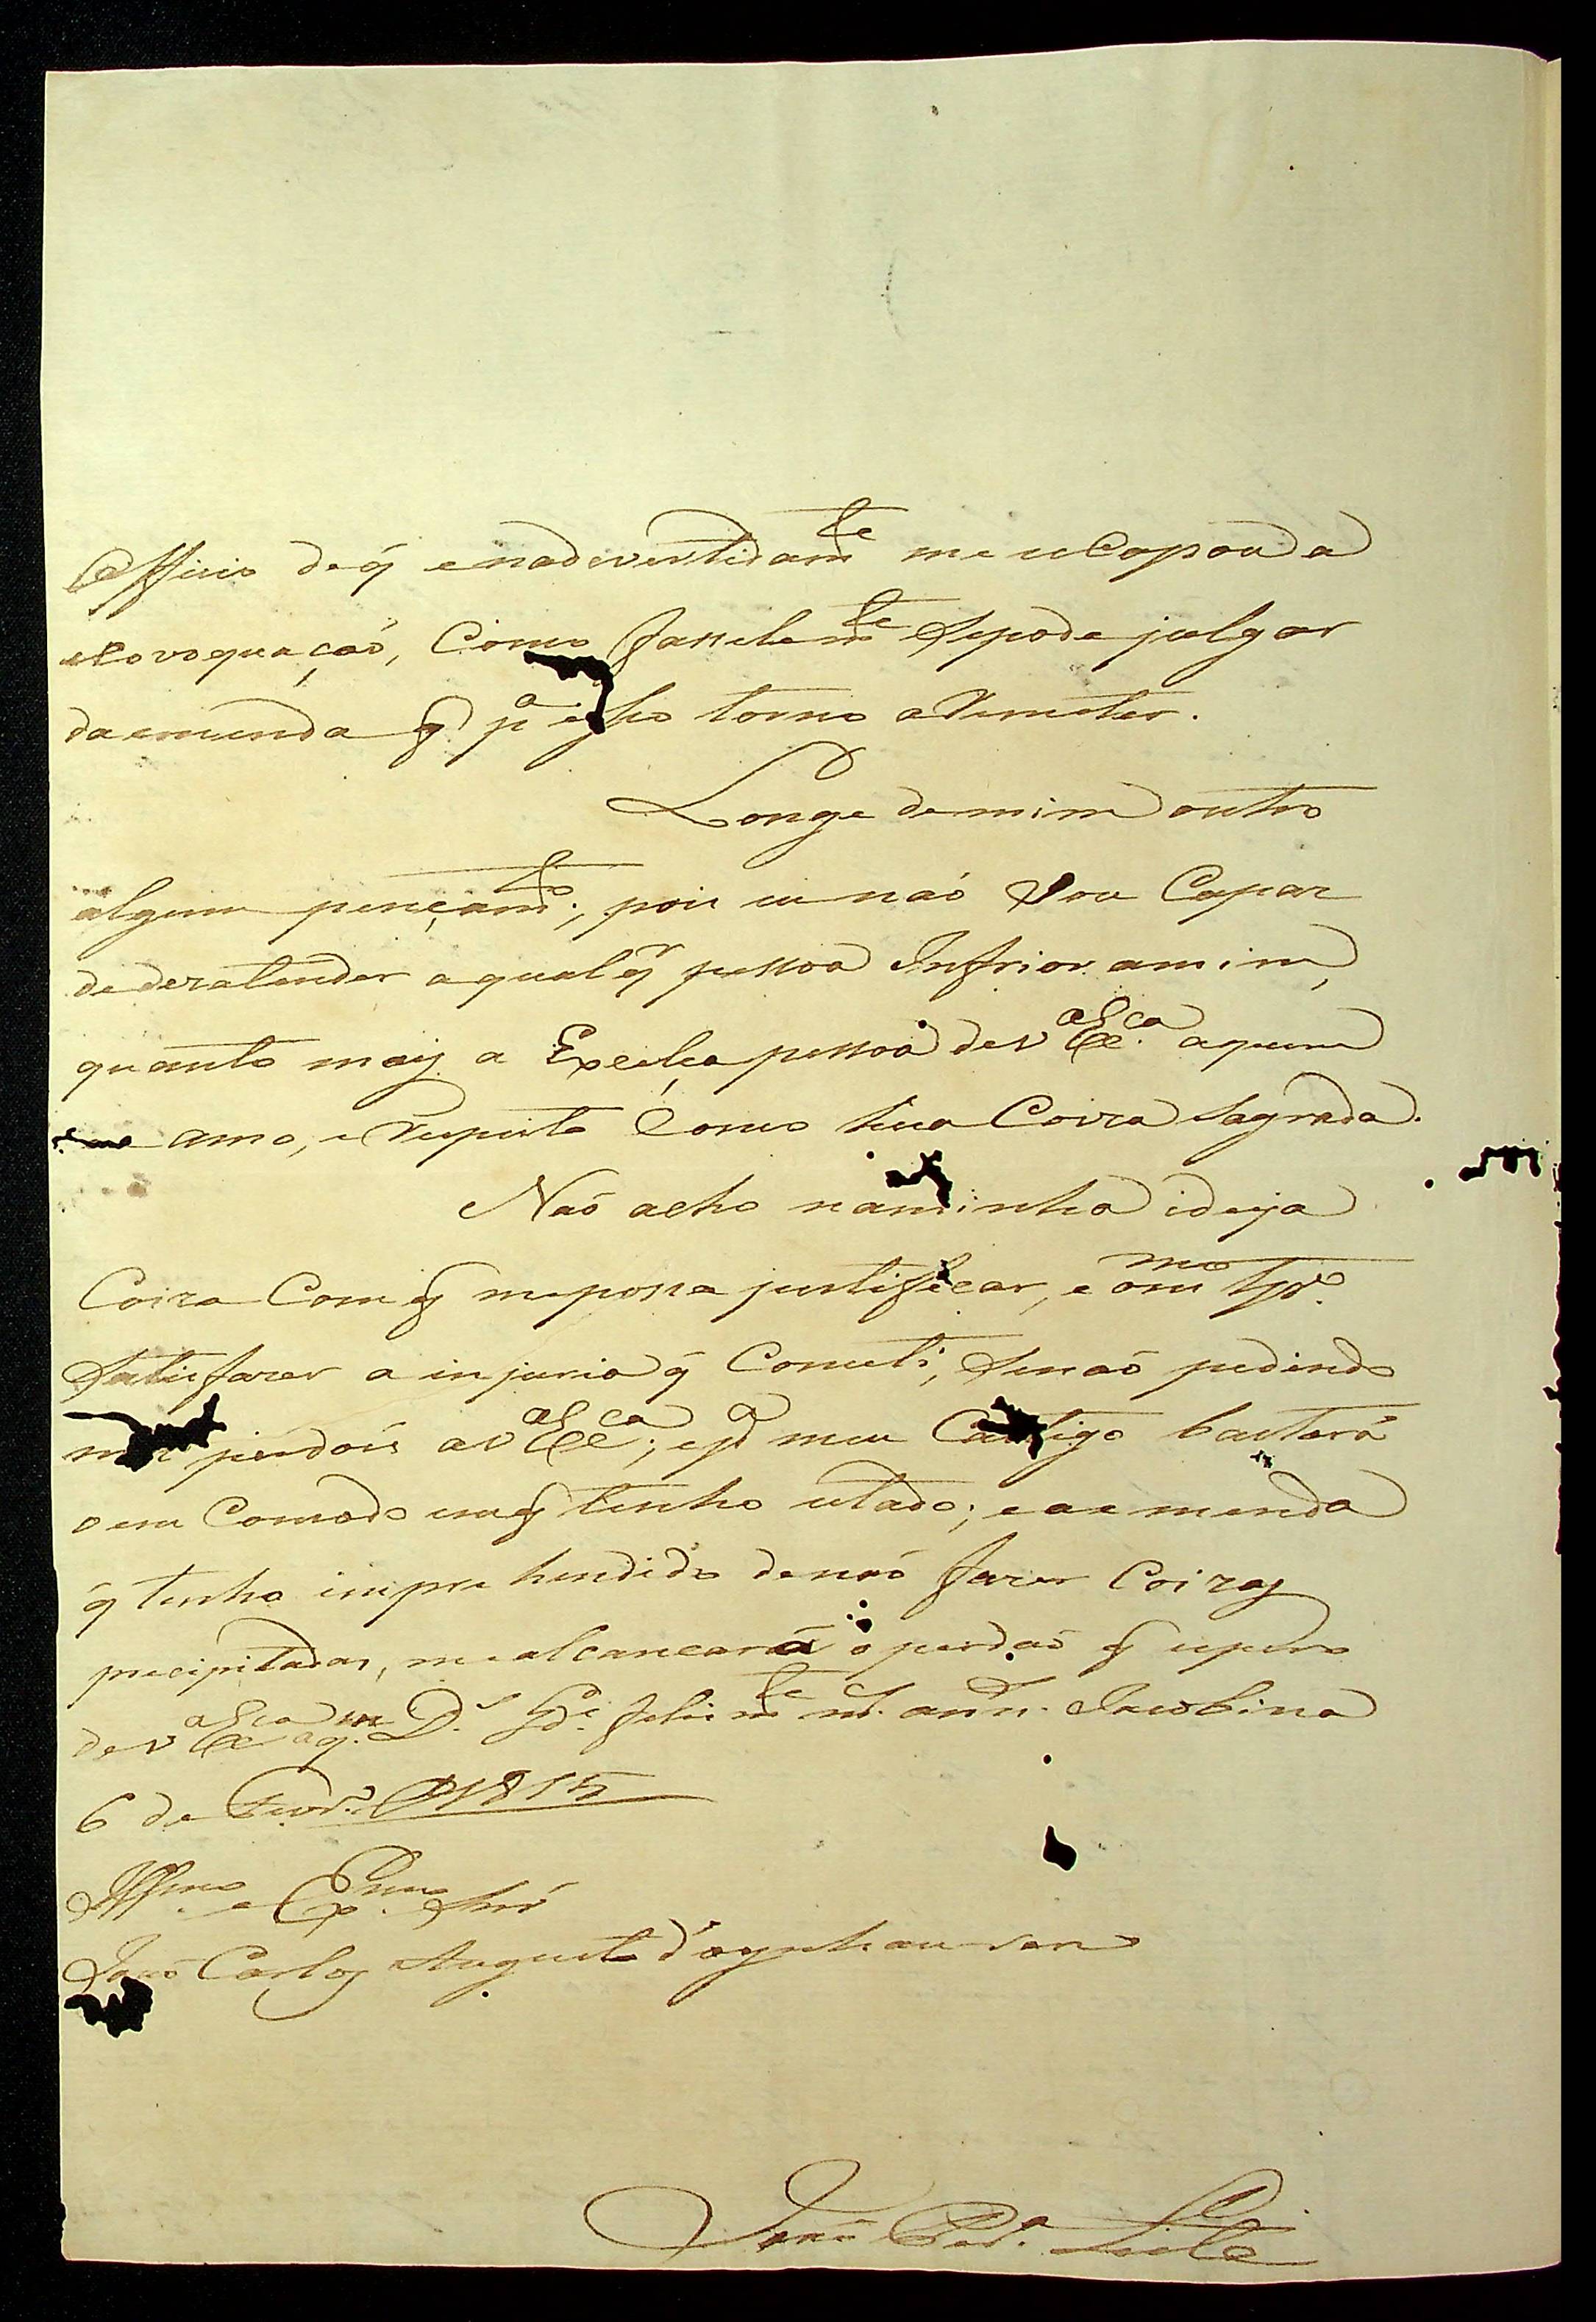 Officio de q̃ enadevertidam.te me escapou da
provoquaçaõ, Como facilem.te Sepode julgar
daemenda q̃ p.a esse torno aRemeter.
Longe demim outro
algum pençam.to; pois eu naõ Sou Capaz
dedezatender aqualq.r pessoa Infrior amim,
quanto mais a Excelça pessoa deV.a Ex.ca aquem
amo, e Respeito Como hua Coiza Sagrada.
Naõ acho naminha ideja
Coiza Com q̃ meposa justificar, e o mmo tpo.
Satisfazer a injuria q̃ Cometi, Senaõ pedindo
mil perdois aV.a Ex.ca; e p.a meu Castigo bastará
oem Comodo em q̃ tenho estado; e a emenda
q̃ tenho imprehendido denaõ fazer Coizas
precipitadas, me alcancará o perdaõ q̃ espero
deV.a Ex.ca aq.m D.s G.de felism.te m.s ann.s Jacobina
6 de Fevr.o D 1815
Ill.mo e Ex.mo Snr̃
Joaõ Carlos Augusto d'oeynhausen
Joze Per.a Leite